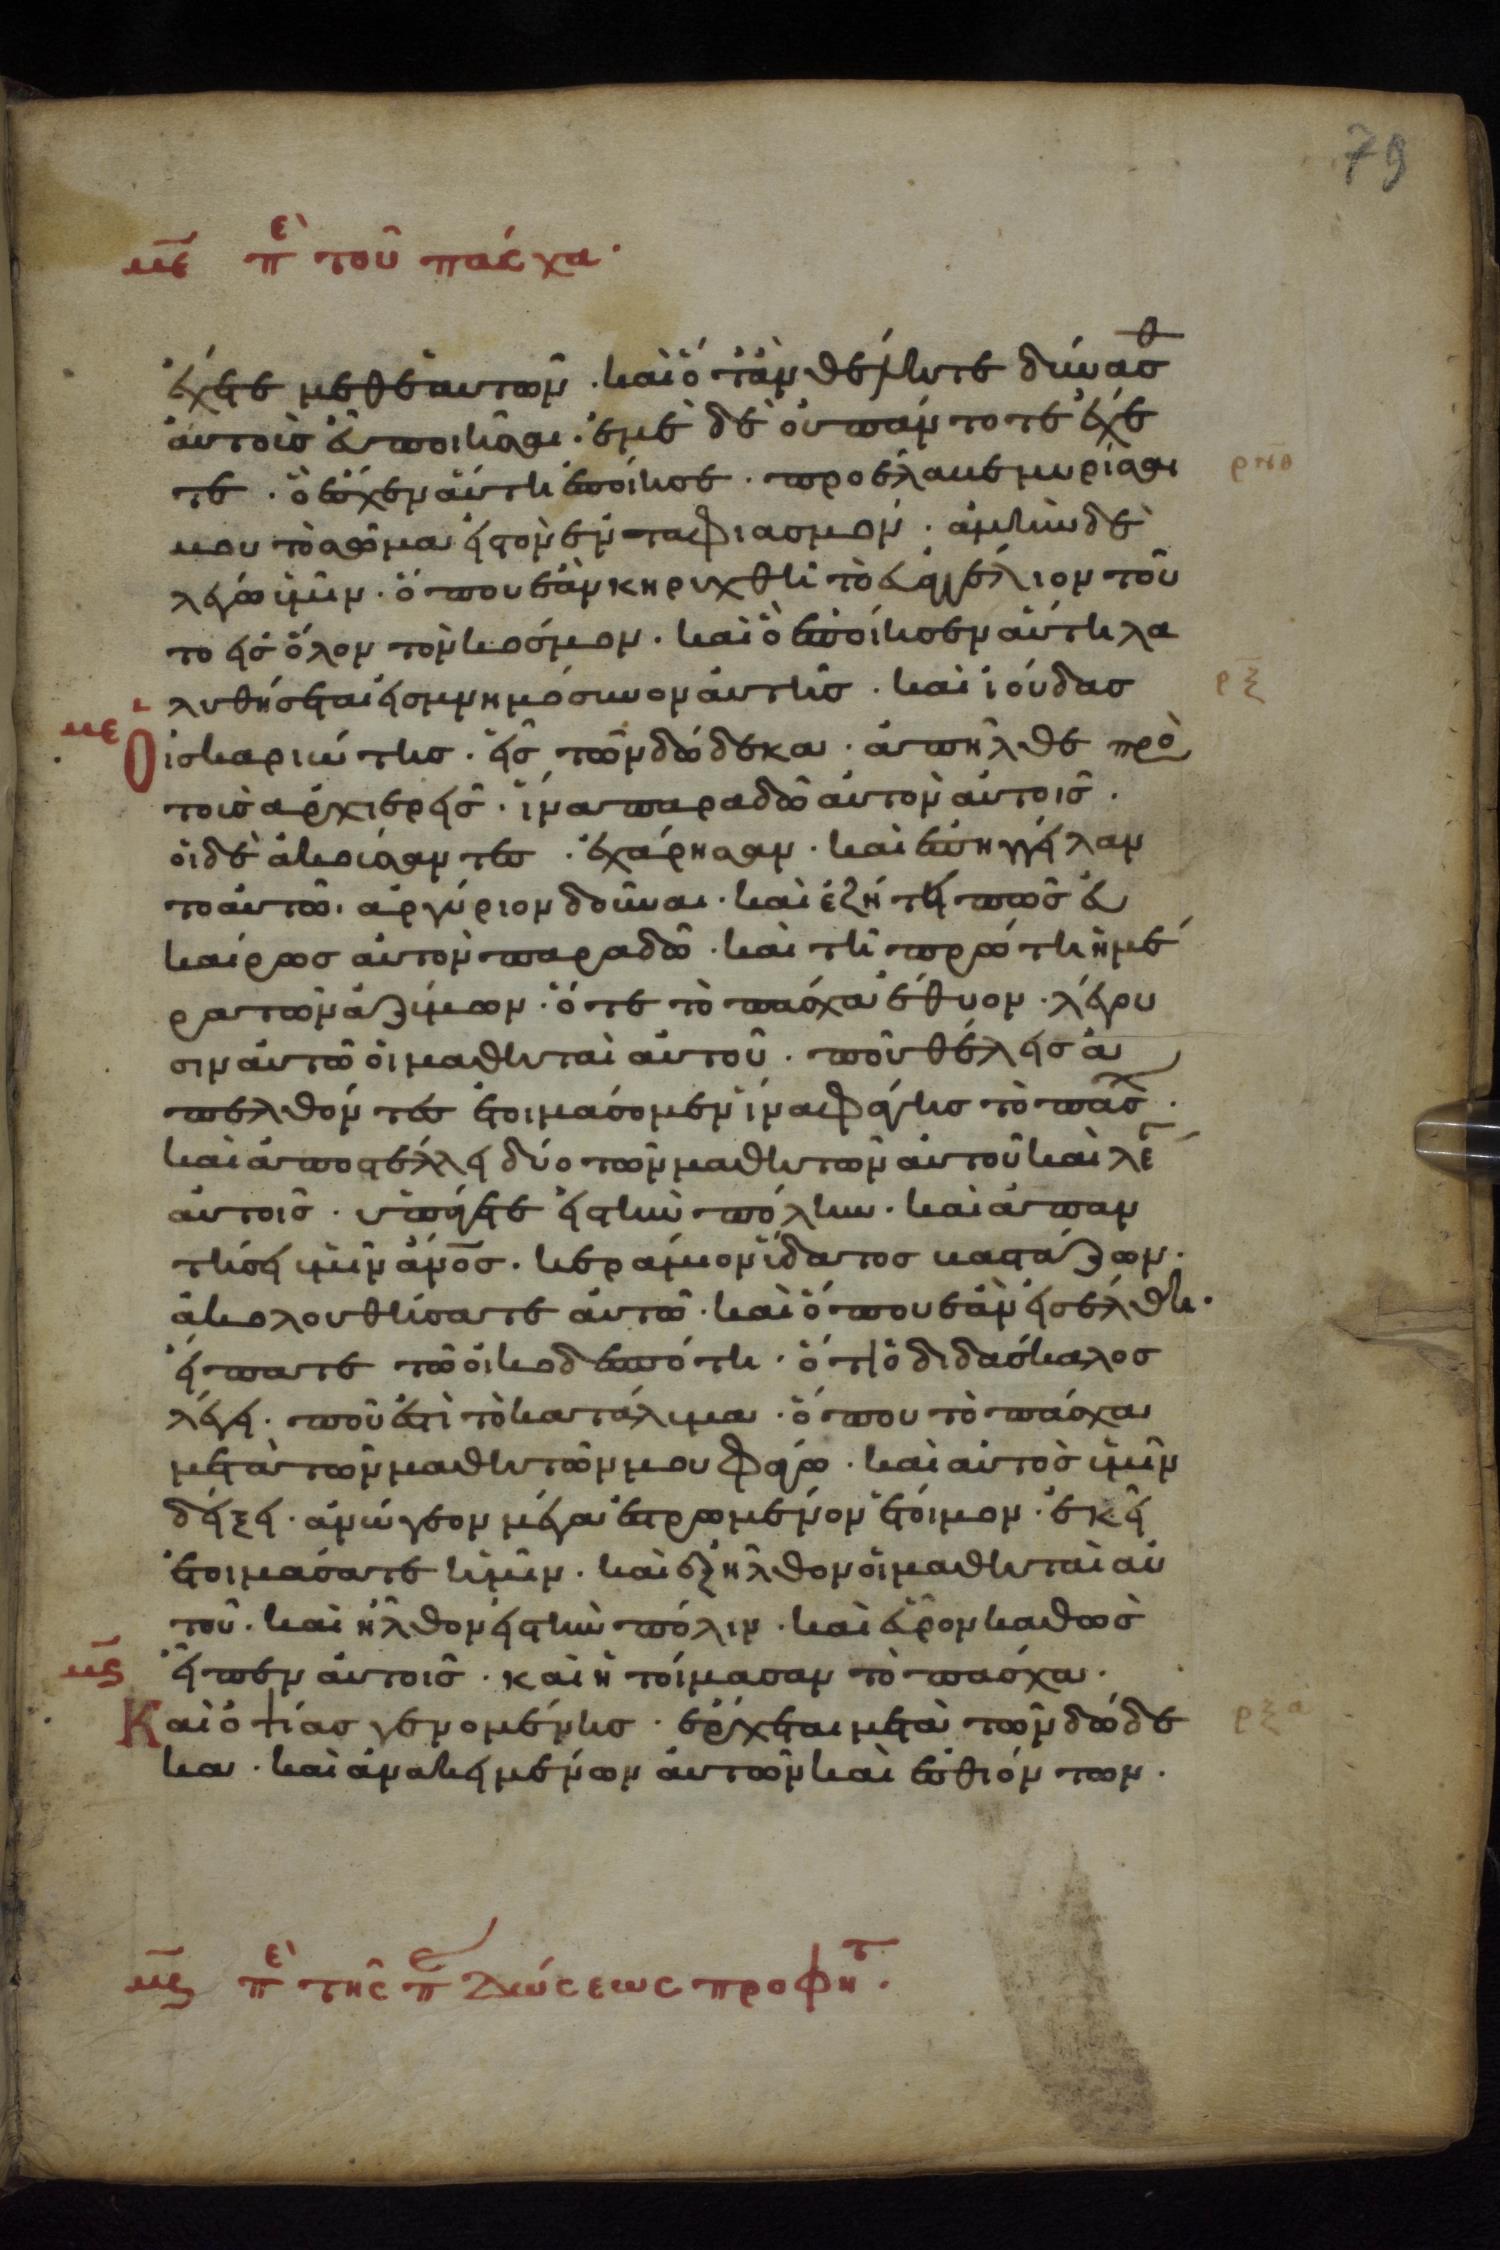 79
μ̅ε̅ πὲ τοῦ πάσχα·
ἔχετε μεθ ἑαυτῶν· καὶ ὅταν θέλητε δύνασθ
αὐτοῖς εὖ ποιῆσαι· ἐμὲ δὲ οὐ πάντοτε ἔχε
τε· ὃ ἔσχεν αὕτη ἐποίησε· προέλαβε μυρίσαι
ρ̅ν̅θ̅
μου τὸ σῶμα εἰς τὸν ἐνταφιασμόν· ἀμὴν δὲ
λέγω ὑμῖν· ὅπου ἐὰν κηρυχθῆ τὸ εὐαγγέλιον τοῦ
το εἰς ὅλον τὸν κόσμον· καὶ ὃ ἐποίησεν αὕτη λα
ληθήσεται εἰς μνημόσυνον αὐτῆς· καὶ ἰούδας
ρ̅ξ̅
με
Ὁ ἰσκαριώτης· εἷς τῶν δώδεκα· ἀπῆλθε πρὸ
τοὺς ἀρχιερεῖς· ἵνα παραδῶ αὐτὸν αὐτοῖς·
οἱ δὲ ἀκούσαντες· ἐχάρησαν· καὶ ἐπηγγείλαν
το αὐτῶ· ἀργύριον δοῦναι· καὶ ἐζήτει πῶς εὐ
καίρως αὐτὸν παραδῶ· καὶ τῆ πρώτη ἡμέ
ρα τῶν ἀζύμων· ὅτε τὸ πάσχα ἔθυον· λέγου
σιν αὐτῶ οἱ μαθηταὶ αὐτοῦ· ποῦ θέλεις ἀ
πελθόντες ἑτοιμάσομεν ἵνα φάγης τὸ πάσχ·
καὶ ἀποστέλλει δύο τῶν μαθητῶν αὐτοῦ καὶ λέγ
αὐτοῖς· ὑπάγετε εἰς τὴν πόλιν· καὶ ἀπαν
τήσει ὑμῖν ἄν̅ο̅ς̅· κεράμιον ὕδατος βαστάζων·
ἀκολουθήσατε αὐτῶ· καὶ ὅπου ἐὰν εἰσέλθη·
εἴπατε τῶ οἰκοδεσπότη· ὅτι ὁ διδάσκαλος
λέγει· ποῦ ἐστὶ τὸ κατάλυμα· ὅπου τὸ πάσχα
μετὰ τῶν μαθητῶν μου φάγω· καὶ αὐτὸς ὑμῖν
δείξει· ἀνώγεον μέγα ἐστρωμένον ἕτοιμον· ἐκεῖ
ἑτοιμάσατε ἡμῖν· καὶ ἐξῆλθον οἱ μαθηταὶ αὐ
τοῦ· καὶ ἦλθον εἰς τὴν πόλιν· καὶ εὗρον καθὼς
μ̅ς̅
εἶπεν αὐτοῖς· καὶ ἡτοίμασαν τὸ πάσχα·
Καὶ ὀψίας γενομένης· ἔρχεται μετὰ τῶν δώδε
ρ̅ξ̅α̅
κα· καὶ ἀνακειμένων αὐτῶν καὶ ἐσθιόντων·
μ̅ς̅ πὲ τῆς π δώσεως προφητ·